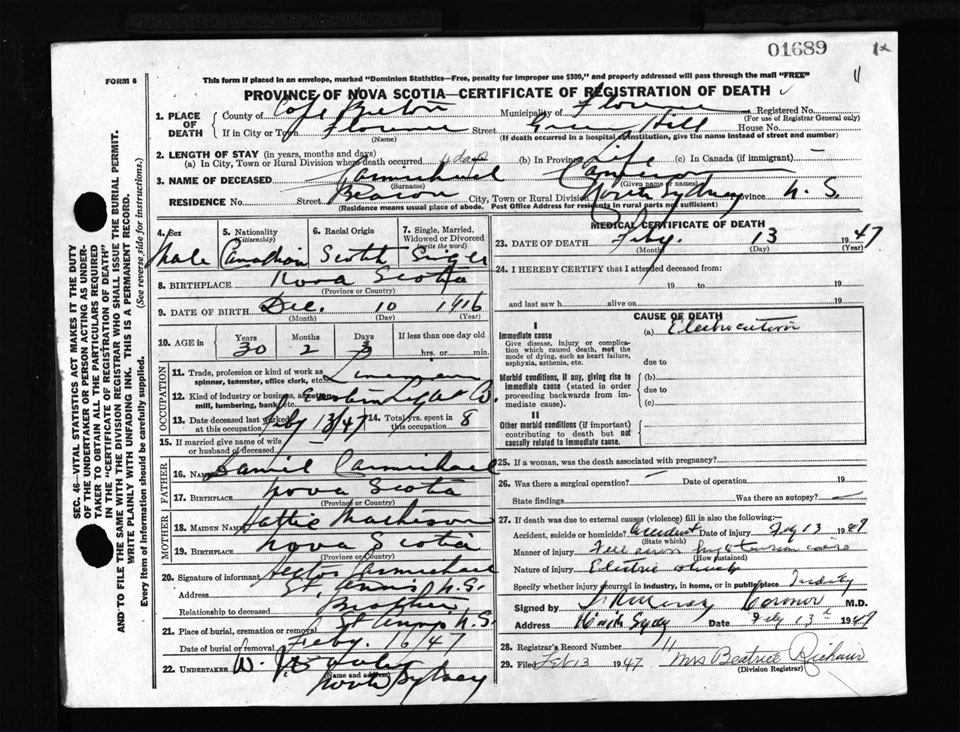 01689
1x
FORM 6
11
This form if placed in an envelope, marked "Dominion Statistics—Free, penalty for improper use $300," and properly addressed will pass through the mail "FREE"
PROVINCE OF NOVA SCOTIA—CERTIFICATE OF REGISTRATION OF DEATH
1. PLACE OF DEATH
County of Cape Breton Municipality of Florence Registered No.
(For use of Registrar General only)
If in City or Town Florence Street Green Hill House No.
(Name) (If death occurred in a hospital or institution, give the name instead of street and number)
2. LENGTH OF STAY (in years, months and days)
(a) In City, Town or Rural Division where death occurred days (b) In Province Life (c) In Canada (if immigrant) —
3. NAME OF DECEASED Carmichael Cameron
(Surname) (Given name or names)
RESIDENCE No. Street Beacon City, Town or Rural Division North Sydney Province N. S.
(Residence means usual place of abode. Post Office Address for residents in rural parts not sufficient)
4. Sex
Male
5. Nationality
(Citizenship)
Canadian
6. Racial Origin
Scotch
7. Single, Married, Widowed or Divorced
(write the word)
Single
8. BIRTHPLACE Nova Scotia
(Province or Country)
9. DATE OF BIRTH Dec. 10 1916
(Month) (Day) (Year)
10. AGE in
Years Months Days If less than one day old
30 2 3 hrs. or min.
OCCUPATION
11. Trade, profession or kind of work as spinner, teamster, office clerk, etc. Lineman
12. Kind of industry or business, as cotton mill, lumbering, bank, etc. Eastern Light & P.
13. Date deceased last worked at this occupation Feby 13/47
14. Total yrs. spent in this occupation 8
15. If married give name of wife or husband of deceased
FATHER
16. Name Daniel Carmichael
17. Birthplace Nova Scotia
(Province or Country)
MOTHER
18. Maiden Name Hattie Matheson
19. Birthplace Nova Scotia
(Province or Country)
20. Signature of informant Hector Carmichael
Address St. Anns N.S.
Relationship to deceased Brother
21. Place of burial, cremation or removal St Anns N.S.
Date of burial or removal Feby. 16/47
22. UNDERTAKER W. J.
(Name and address)
North Sydney
MEDICAL CERTIFICATE OF DEATH
23. DATE OF DEATH Feby. 13 1947
(Month) (Day) (Year)
24. I HEREBY CERTIFY that I attended deceased from:
19 to 19
and last saw h alive on 19
CAUSE OF DEATH
I
Immediate cause
Give disease, injury or complication which caused death, not the mode of dying, such as heart failure, asphyxia, asthenia, etc.
(a) Electrocution
due to
Morbid conditions, if any, giving rise to immediate cause (stated in order proceeding backwards from immediate cause).
(b)
due to
(c)
II
Other morbid conditions (if important) contributing to death but not causally related to immediate cause.
25. If a woman, was the death associated with pregnancy?
26. Was there a surgical operation? Date of operation 19
State findings Was there an autopsy? —
27. If death was due to external causes (violence) fill in also the following:—
Accident, suicide or homicide? Accident Date of injury Feb 13 1947
(State which)
Manner of injury Fell high tension wire
(How sustained)
Nature of injury Electric shock
Specify whether injury occurred in industry, in home, or in public place Industry
Signed by Coroner M.D.
Address North Sydney Date Feb 13 1947
28. Registrar's Record Number 11
29. Filed Feb 13 1947 Mrs Beatrice
(Division Registrar)
SEC. 46—VITAL STATISTICS ACT MAKES IT THE DUTY OF THE UNDERTAKER OR PERSON ACTING AS UNDERTAKER TO OBTAIN ALL THE PARTICULARS REQUIRED IN THE "CERTIFICATE OF REGISTRATION OF DEATH" AND TO FILE THE SAME WITH THE DIVISION REGISTRAR WHO SHALL ISSUE THE BURIAL PERMIT.
WRITE PLAINLY WITH UNFADING INK. THIS IS A PERMANENT RECORD.
Every item of information should be carefully supplied. (See reverse side for instructions.)